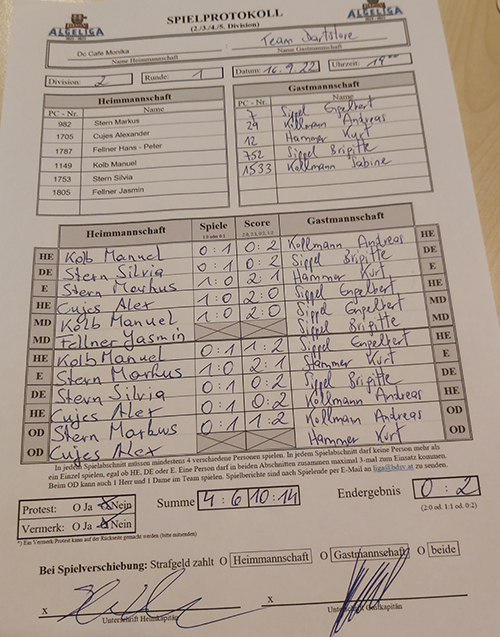 ALGELIGA SPIELPROTOKOLL ALGELIGA
(2./3./4./5. Division)
Dc Cafe Monika Team Dartstore
Name Heimmannschaft Name Gastmannschaft
Division: 2 Runde: 1 Datum: 16.9.22 Uhrzeit: 19
Heimmannschaft Gastmannschaft
PC - Nr. Name PC - Nr. Name
982 Stern Markus 7 Sippel Engelbert
1705 Cujes Alexander 29 Kollmann Andreas
1787 Fellner Hans - Peter 12 Hammer Kurt
1149 Kolb Manuel 752 Sippel Brigitte
1753 Stern Silvia 1533 Kollmann Sabine
1805 Fellner Jasmin
Heimmannschaft Spiele Score Gastmannschaft
HE Kolb Manuel 0:1 0:2 Kollmann Andreas HE
DE Stern Silvia 0:1 0:2 Sippel Brigitte DE
E Stern Markus 1:0 2:1 Hammer Kurt E
HE Cujes Alex 1:0 2:0 Sippel Engelbert HE
MD Kolb Manuel 1:0 2:0 Sippel Engelbert MD
MD Fellner Jasmin Sippel Brigitte MD
HE Kolb Manuel 0:1 1:2 Sippel Engelbert HE
E Stern Markus 1:0 2:1 Hammer Kurt E
DE Stern Silvia 0:1 0:2 Sippel Brigitte DE
HE Cujes Alex 0:1 0:2 Kollmann Andreas HE
OD Stern Markus 0:1 1:2 Kollmann Andreas OD
OD Cujes Alex Hammer Kurt OD
In jedem Spielabschnitt müssen mindestens 4 verschiedene Personen spielen. In jedem Spielabschnitt darf keine Person mehr als
ein Einzel spielen, egal ob HE, DE oder E. Eine Person darf in beiden Abschnitten zusammen maximal 3-mal zum Einsatz kommen.
Beim OD kann auch 1 Herr und 1 Dame im Team spielen. Spielberichte sind nach Spielende per E-Mail an liga@bdsv.at zu senden.
Protest: O Ja O Nein Summe 4:6 10:14 Endergebnis 0:2
Vermerk: O Ja O Nein (2:0 od. 1:1 od. 0:2)
*) Ein Vermerk/Protest kann auf der Rückseite gemacht werden (bitte ankreuzen)
Bei Spielverschiebung: Strafgeld zahlt O Heimmannschaft O Gastmannschaft O beide
x x
Unterschrift Heimkapitän Unterschrift Gastkapitän